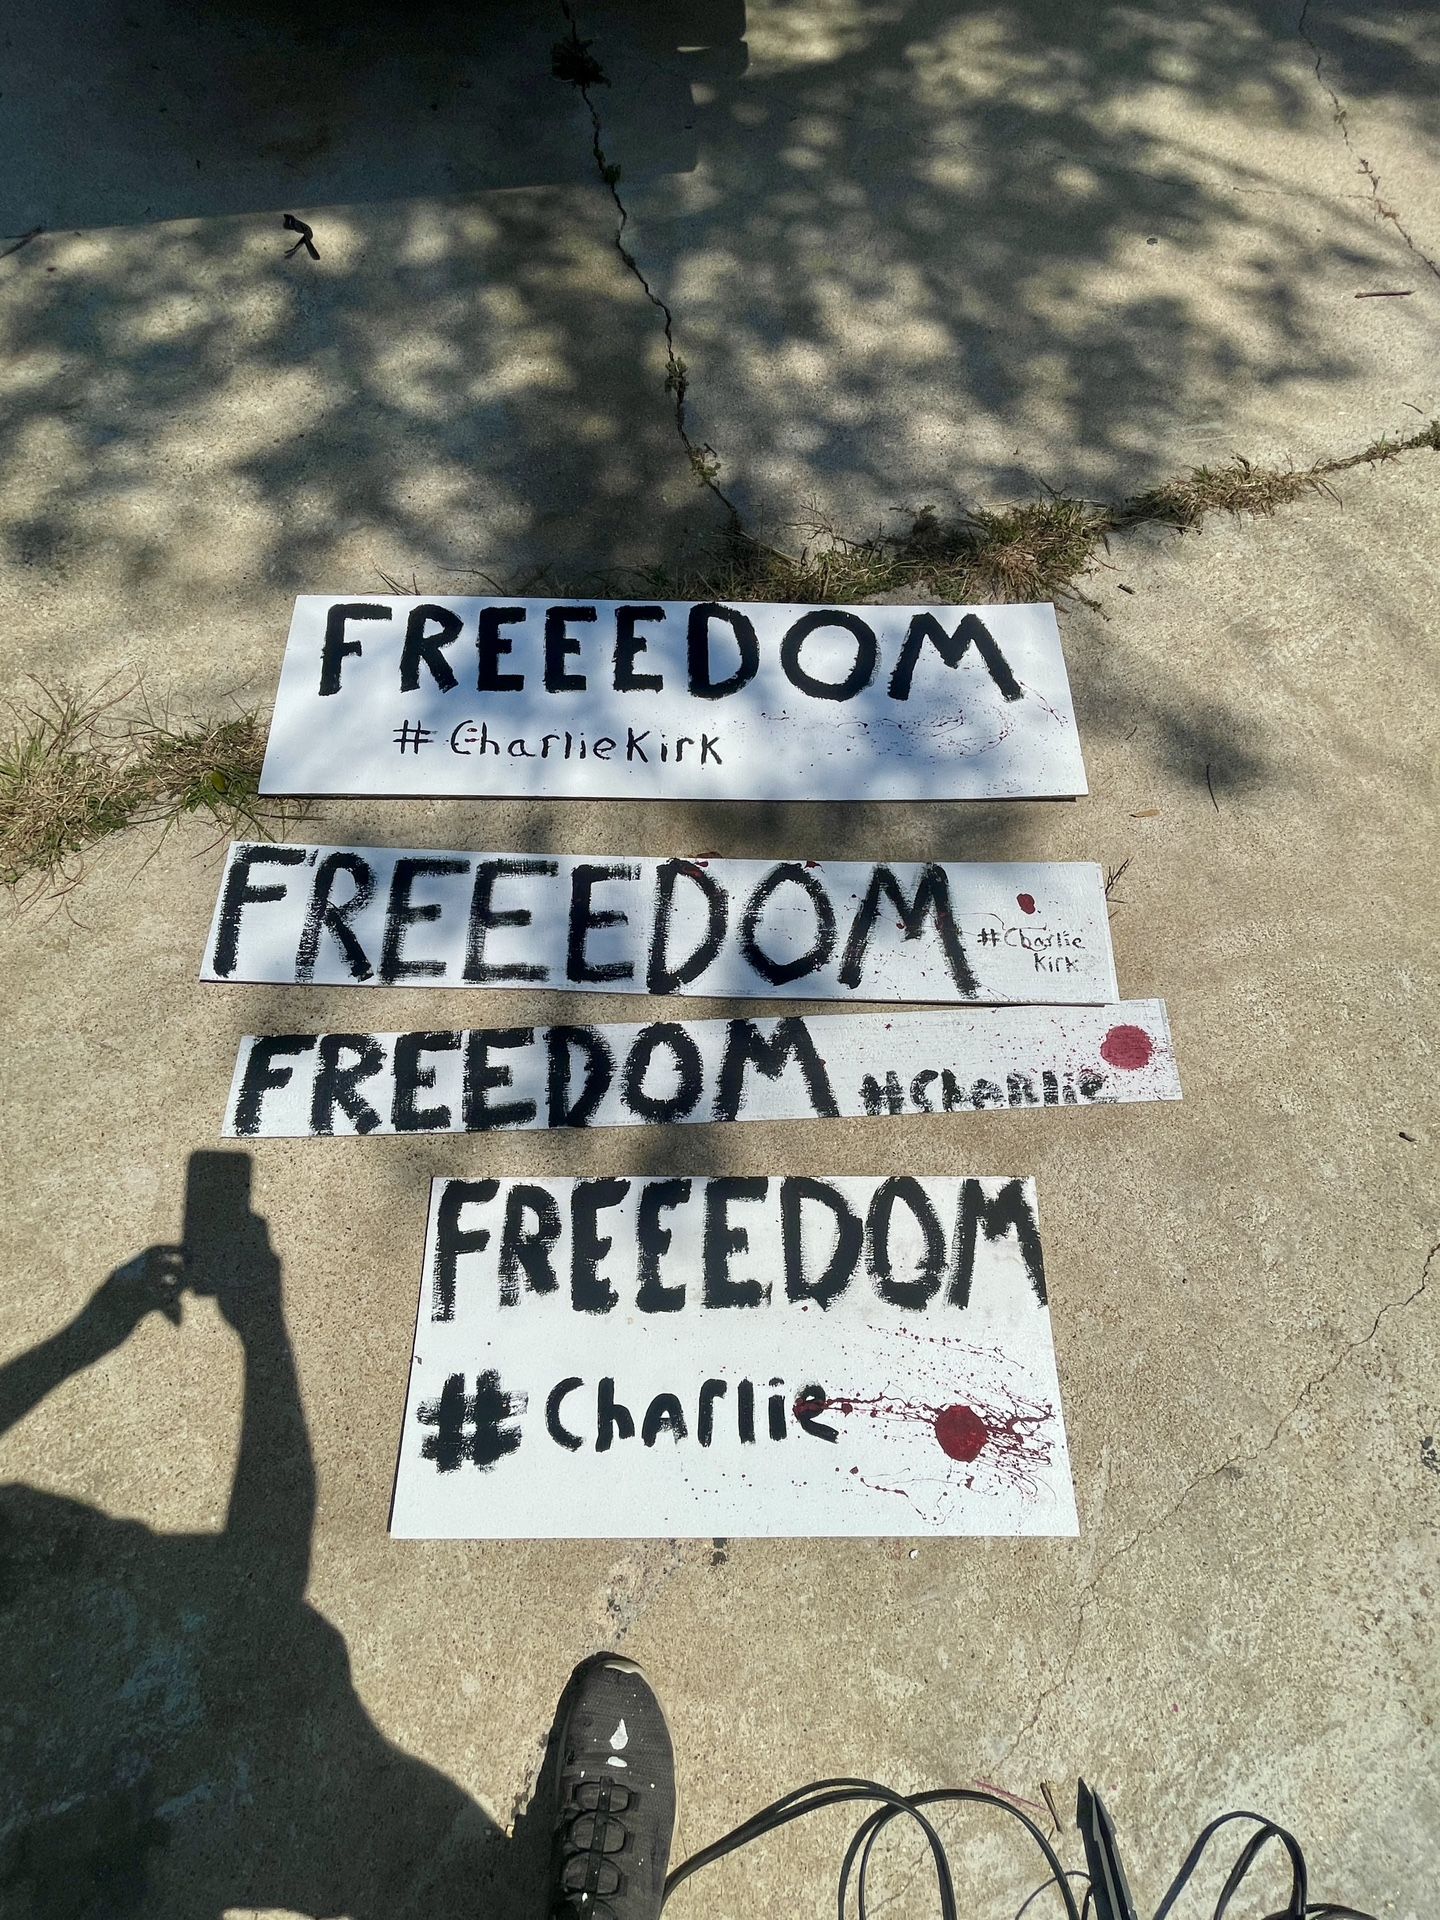 FREEEDOM
#CharlieKirk
FREEEDOM
#Charlie
Kirk
FREEDOM #ChaRlie
FREEEDOM
#Charlie